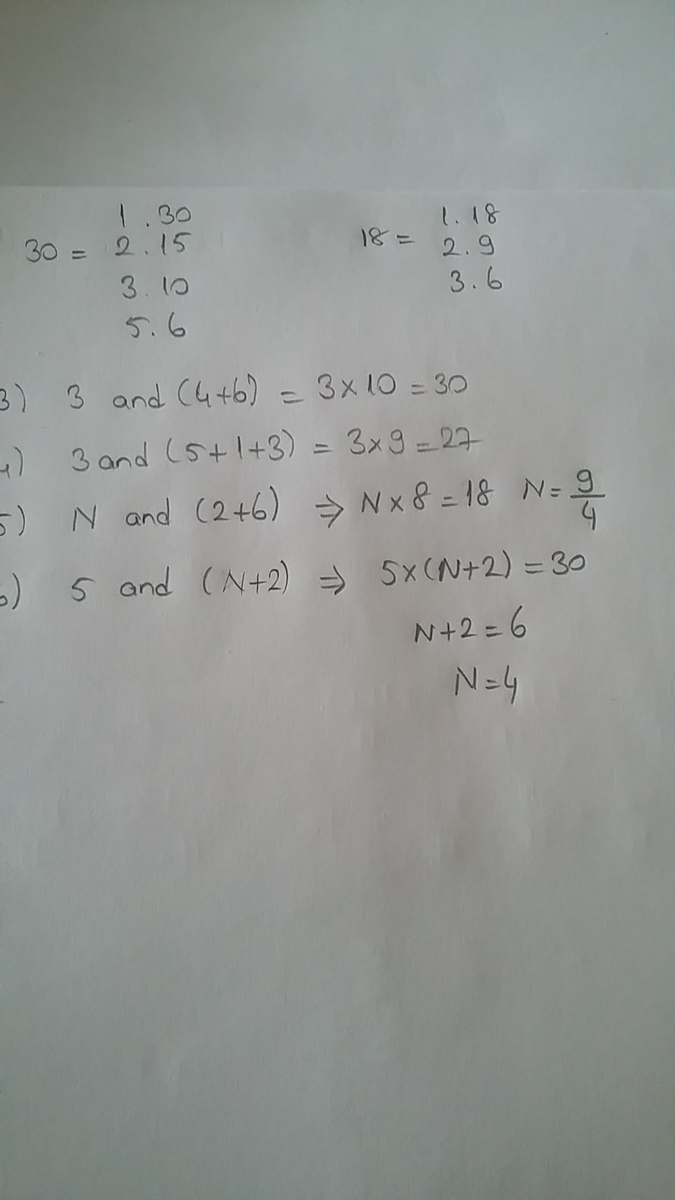 1 . 30
30 = 2 . 15
3 . 10
5 . 6
1 . 18
18 = 2 . 9
3 . 6
3) 3 and (4+6) = 3×10 = 30
4) 3 and (5+1+3) = 3×9 = 27
5) N and (2+6) ⇒ N×8 = 18 N = 9/4
6) 5 and (N+2) ⇒ 5×(N+2) = 30
N+2 = 6
N = 4